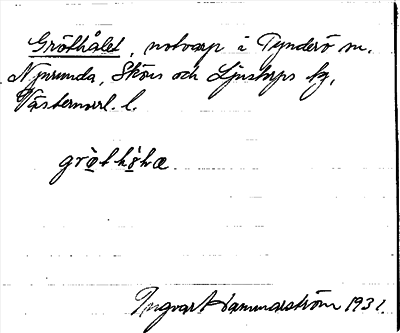 Gröthålet, notvarp i Tynderö m.
Njurunda, Sköns och Ljustorps tg,
Västernorrl. l.
Ingvar Hammarström 1931.